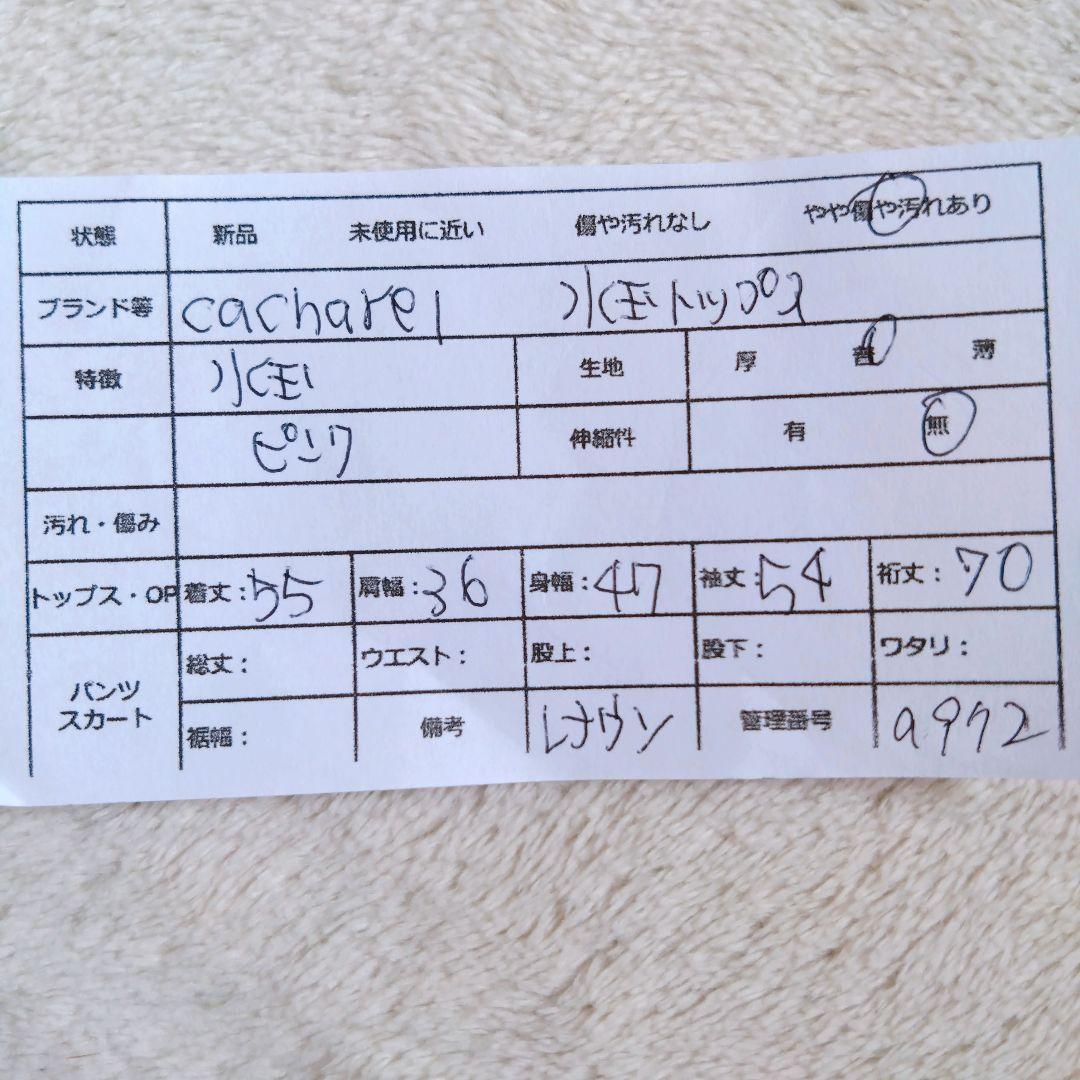 状態 新品 未使用に近い 傷や汚れなし やや傷や汚れあり
ブランド等 cacharel 水玉トップス
特徴 水玉 生地 厚 普 薄
ピンク 伸縮性 有 無
汚れ・傷み
トップス・OP 着丈:55 肩幅:36 身幅:47 袖丈:54 裄丈:70
パンツ スカート
総丈: ウエスト: 股上: 股下: ワタリ:
裾幅: 備考 レナウン 管理番号 a972